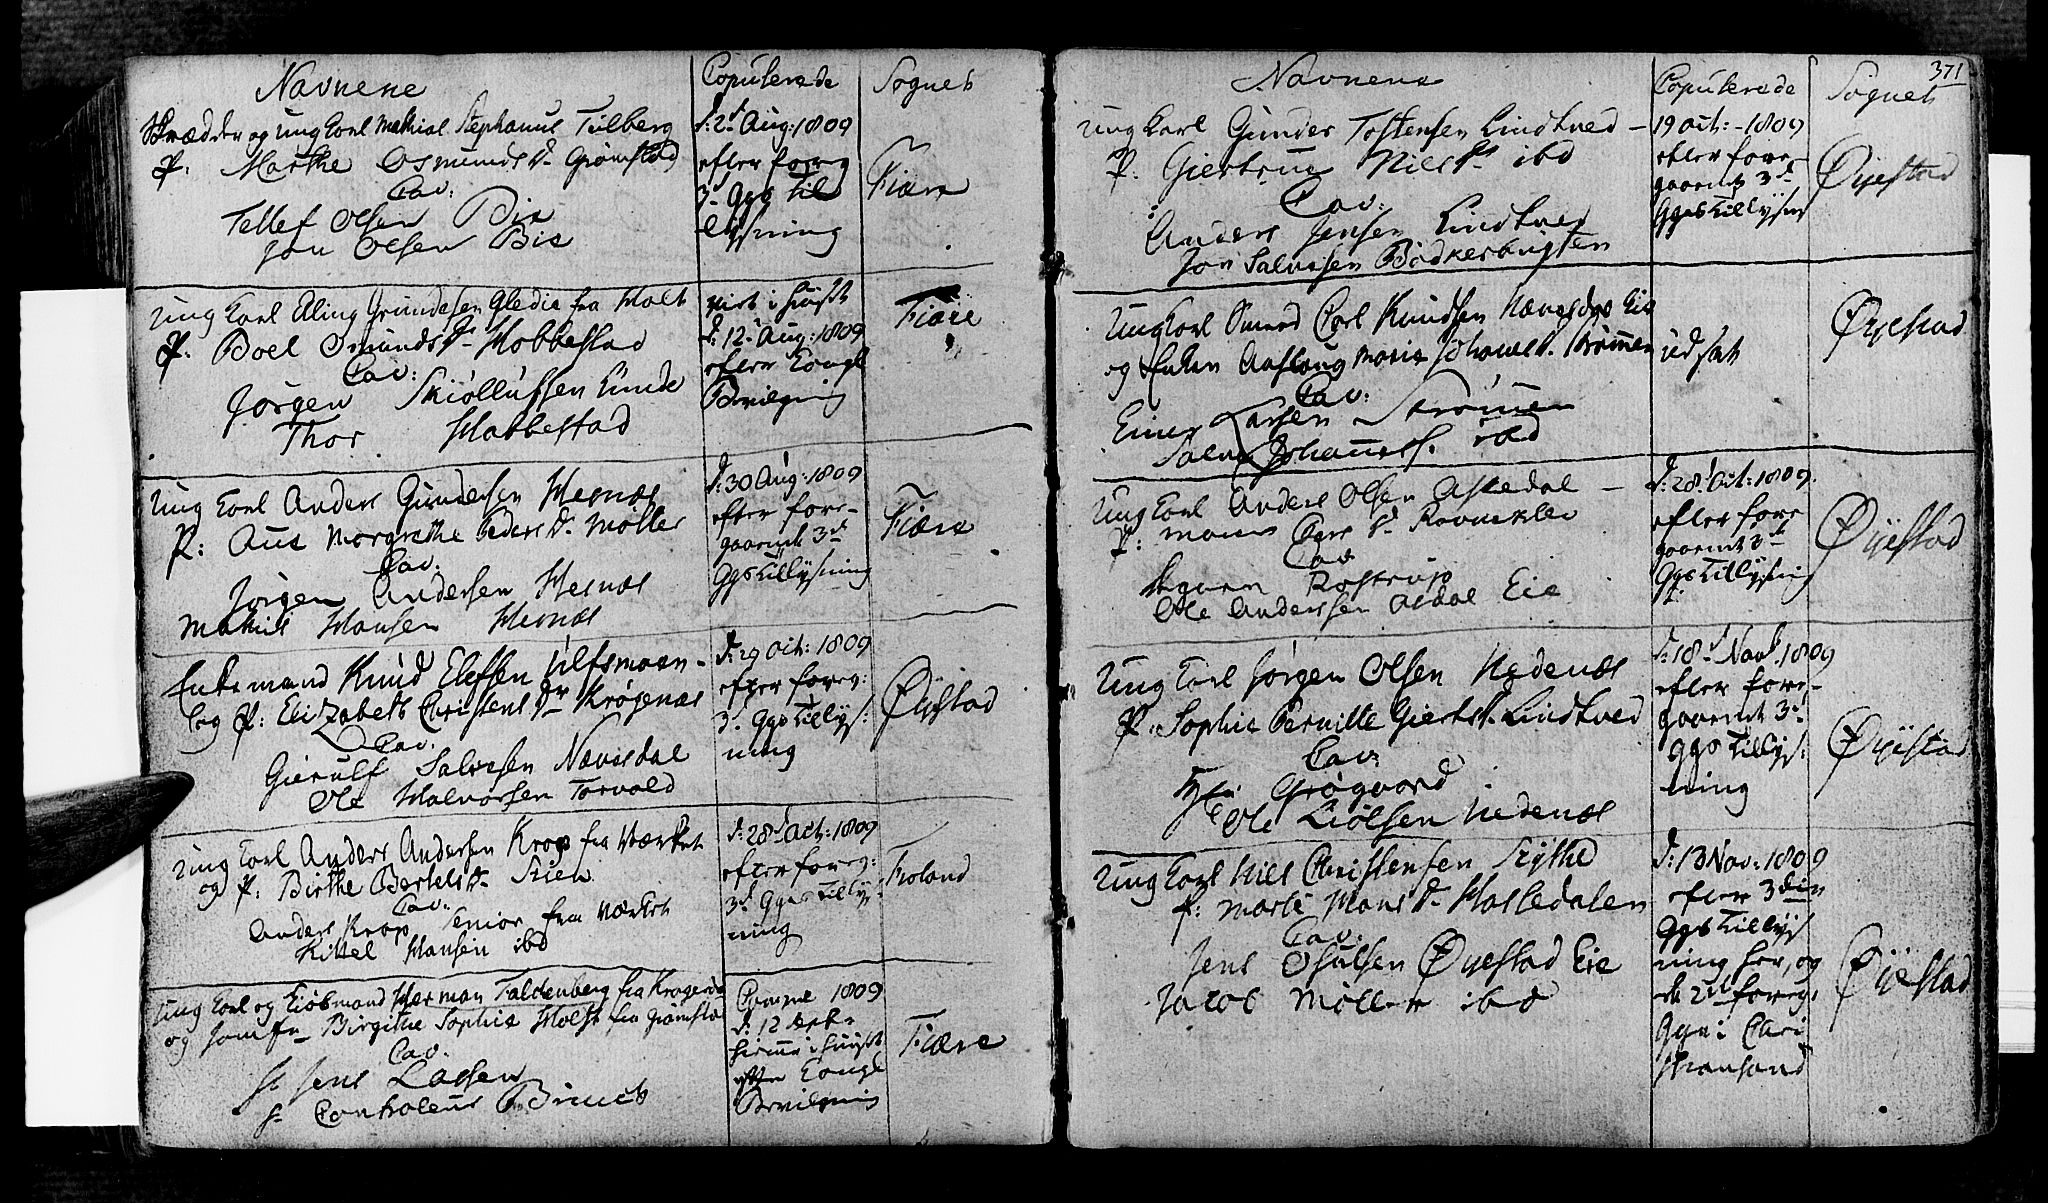 Navnene
Copulerede
Sognet
Skrædder og ung Karl Mathias Stephanus Tulberg
P: Marthe Osmundsd. Grømstad
Cav:
Tellef Olsen Bie
Jon Olsen Bie
d: 2d Aug: 1809
efter foreg
3d Ggs Til
lysning
Fiære
Ung Karl Elling Grundesen Gledie fra Holt
P. Boel Osmundsd. Habbestad
Cav:
Jørgen Skiøllufsen Lunde
Thor Habbestad
viet i Huuset
d: 12. Aug: 1809
efter Kongl
Bevilgning
Fiære
Ung Karl Anders Gundersen Hesnæs
P: Ane Margrethe Pedersd. Møller
Cav.
Jørgen Andersen Hesnæs
Mathis Hansen Hesnæs
d: 30 Aug: 1809
efter fore-
gaaende 3d
Ggs Tillysning
Fiære
Enkemand Knud Elefsen Ulfsmoen-
og P: Elizabeth Christensdr Krøgenæs
Cav.
Gierulf Salvesen Nævesdal
Ole Halvorsen Torvold
d: 29 Oct: 1809
efter foreg:
3d Ggs Tillys:
ning
Øyestad
Ung Karl Anders Andersen Krop fra Værket
og P: Birthe Bertelsd. Skien
Cav.
Anders Krop Senior fra Værket
Kittel Hansen ibd
d: 28d Oct: 1809
efter foreg:
3d Ggs Tillys
ning
Froland
Ung Karl og Kiøbmand Herman Faldenberg fra Kragerøe
og Jomfr Birgithe Sophie Holst fra Grømstad
Cav.
Hr Jens Lassen
Hr Controleur Bruus
1809
d: 12
hiemme i Huuset
efter Kongl
Bevilgning
Fiære
371
Navnene
Copulerede
Sognet
Ung Karl Gunder Tostensen Lindtved -
P. Giertrue Nilsd. ibd
Cav:
Anders Jensen Lindtved
Jon Salvesen Bødkerbugten
19 Oct: - 1809
efter fore-
gaaende 3d
Ggs Tillysn
Øyestad
Ung Karl Smed Carl Knudsen Nævesdals Eie
og Enken Aaslaug Marie Johansd. Strømmen
Cav:
Einer Larsen Strømmen
Salve Johanness. ibd
udsat
Øyestad
Ung Karl Anders Olsen Assedal -
P: Maren Larsd. Ravneklev
Cav
Rostrup
Ole Andersen Asdal Eie
d: 28. Oct: 1809.
efter fore
gaaende 3d
Ggs Tillysning
Øyestad
Ung Karl Jørgen Olsen Nedenæs
P. Sophie Pernille Giertsd. Lindtved
Cav:
Grøgaard
Ole Liølsen Nedenæs
d: 18d Novb. 1809
efter fore-
gaaende 3d
Ggs Tillys:
ning
Øyestad
Ung Karl Nils Christensen Skythe
P: Marte Hansd. Hasledalen
Cav:
Jens Osulsen Øyestad Eie
Jacob Møller ibd
d: 13 Nov: 1809
efter 3die
Ggs Tillys
ning her, og
de 2de foreg:
Gge i Chri
stiansand
Øyestad